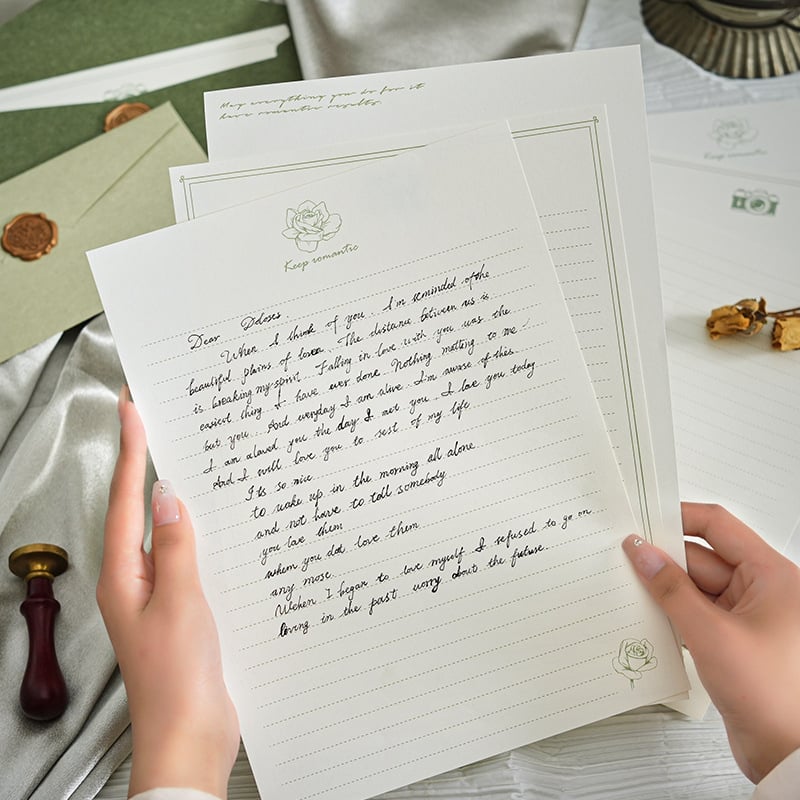 May everything you do for it
have romantic results.
Keep romantic
Keep romantic
Dear Doloses
When I think of you I'm reminded of the
beautiful plains of lover. The distance between us is
is breaking my spirit. Falling in love with you was the
easiest thing I have ever done. Nothing matting to me
but you. And everyday I am alive. I'm aware of this.
I am aloved you the day I met you. I love you today.
And I will love you to sest of my life.
It's so nice
to wake up in the morning all alone
and not have to tell somebody
you love them
when you dot love them
any more.
Wehen I began to love myself I refused to go on
loving in the past worry about the future.